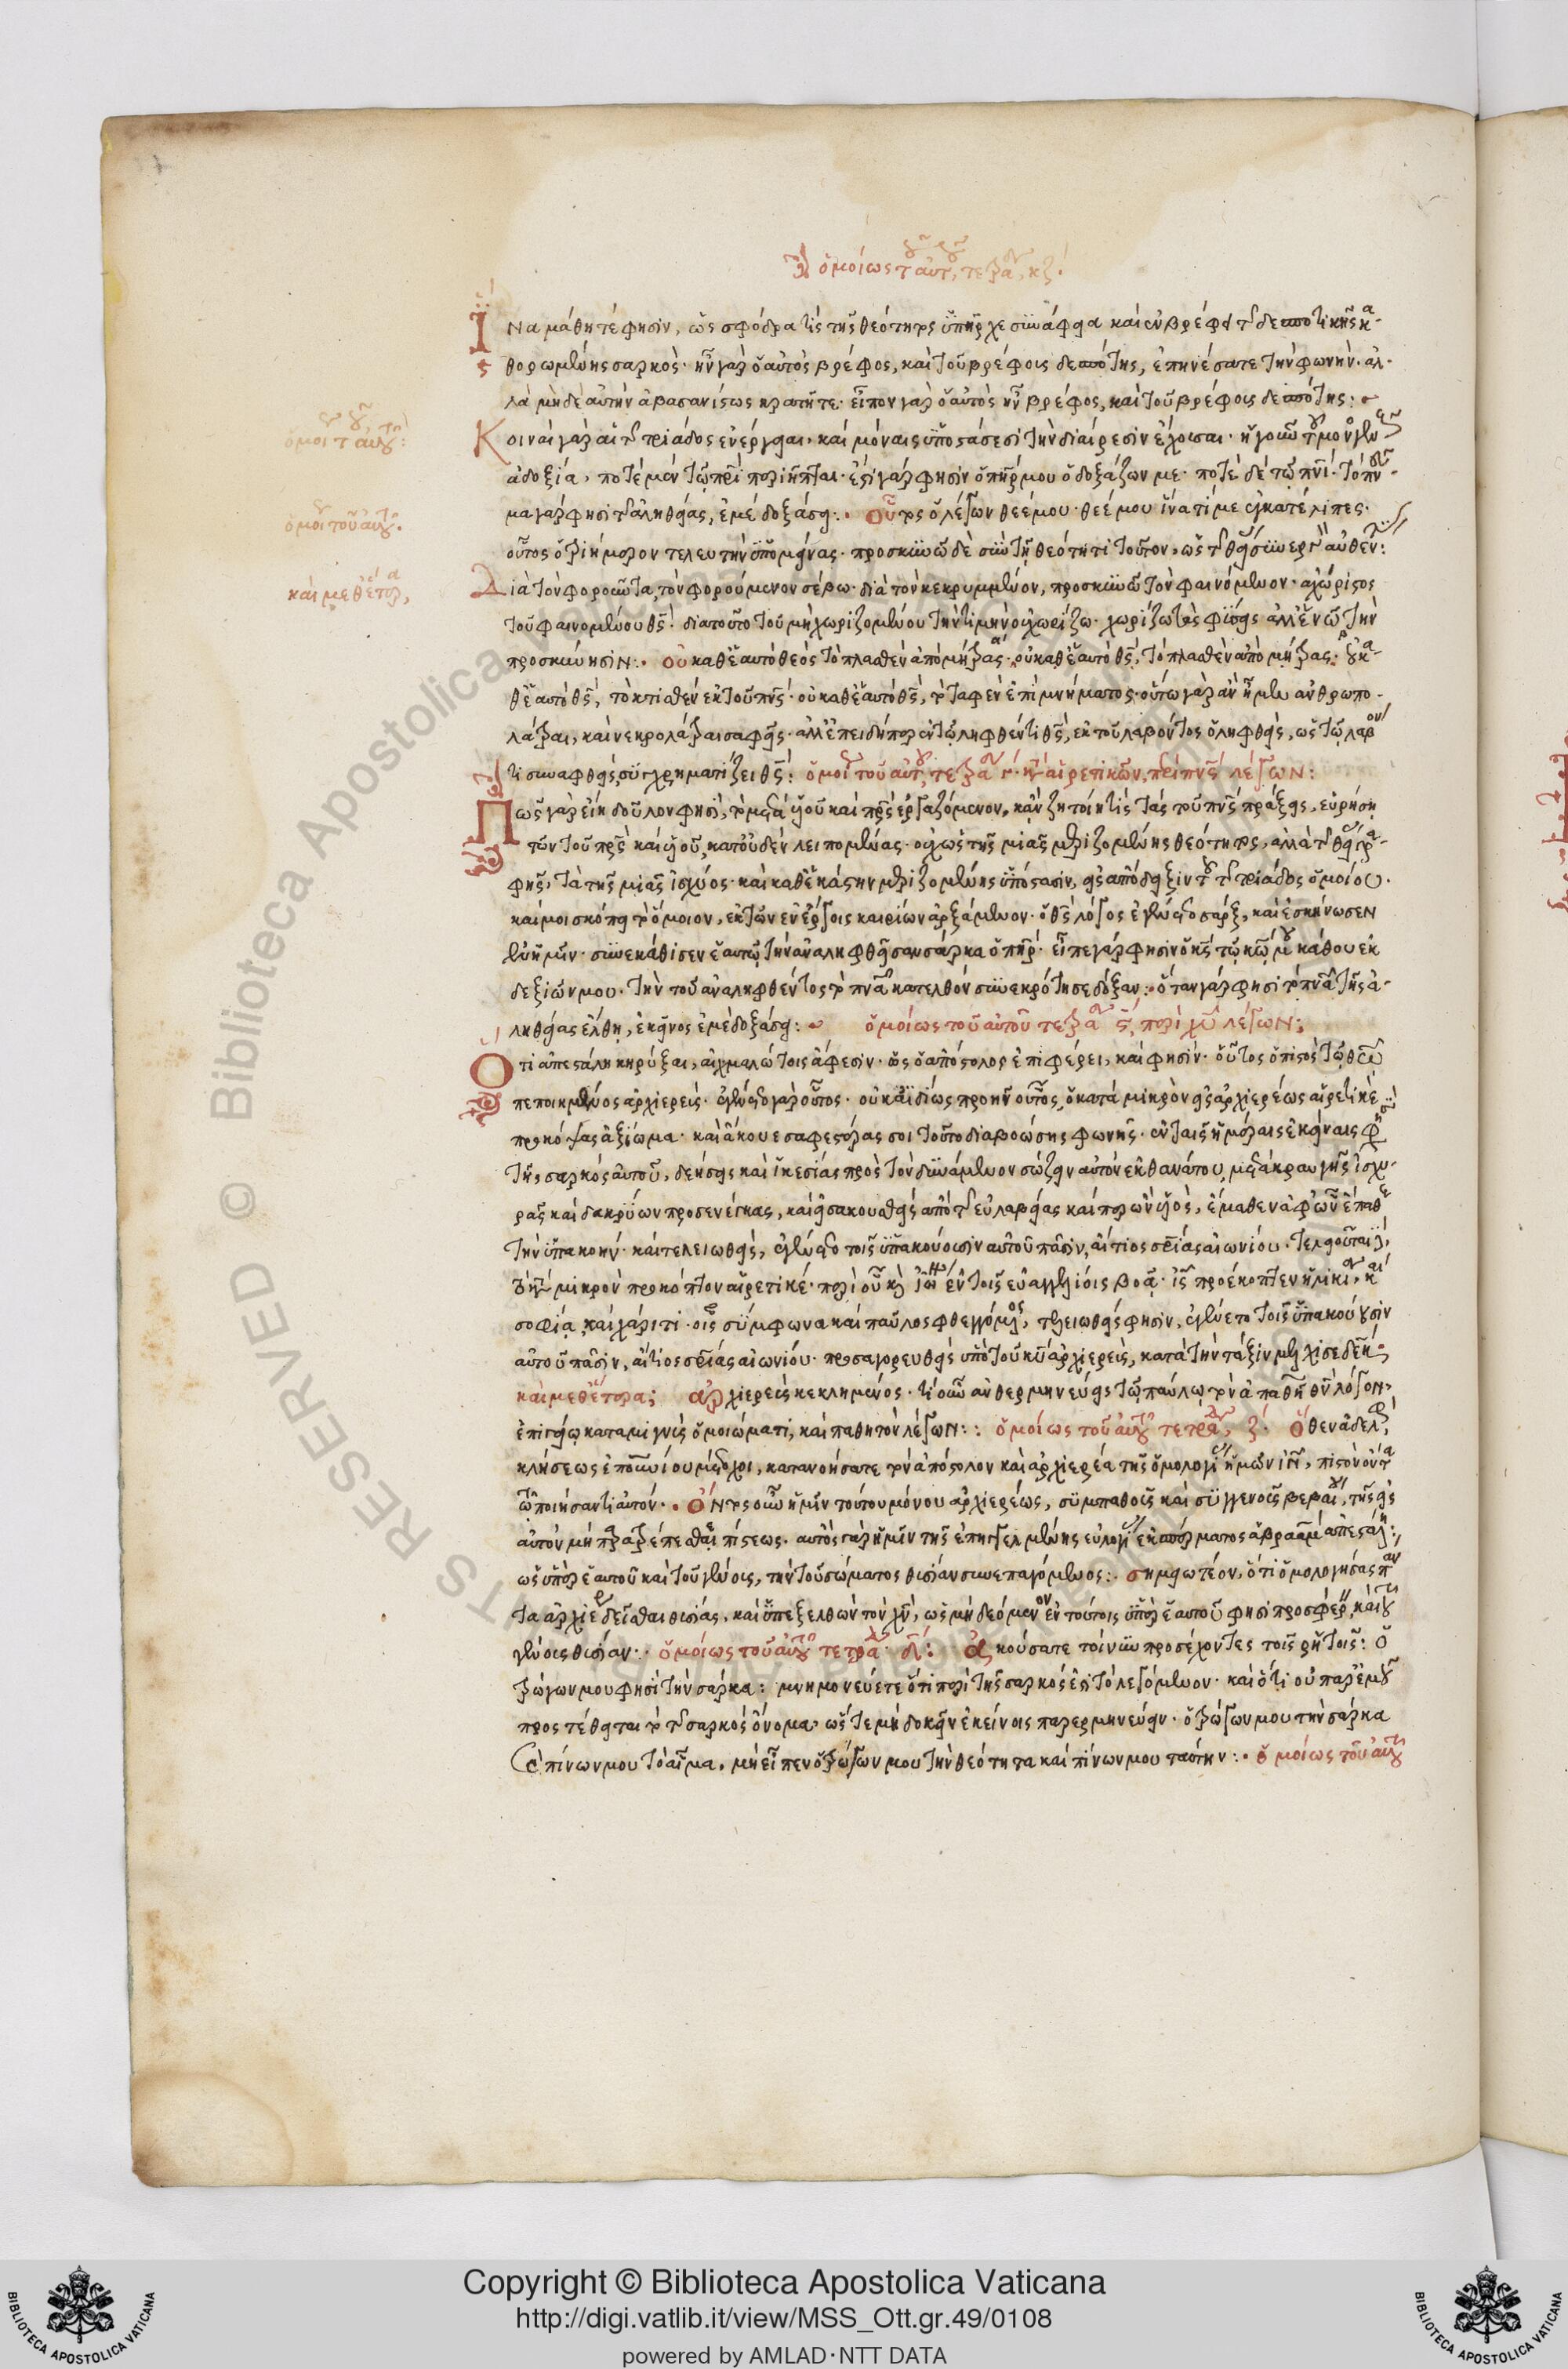 ὁμοίως τοῦ αὐτοῦ, τετρὰδ, κζ´
Ἵνα μάθητέ φησιν, ὡς σφόδρα τίς τῆς θεότητος ὑπῆρχε συνάφεια καὶ ἐν βρέφει τῆς δεσποτικῆς κα-
θορωμένης σαρκός· ἦν γὰρ ὁ αὐτὸς βρέφος, καὶ τοῦ βρέφους δεσπότης, ἐπηνέσατε τὴν φωνήν· ἀλ-
λὰ μὴ δὲ αὐτὴν ἀβασανίστως κροτῆτε· εἶπον γὰρ ὁ αὐτὸς ἦν βρέφος, καὶ τοῦ βρέφους δεσπότης:
ὁμοί τοῦ αὐτοῦ:
Κοιναὶ γὰρ αἱ τῆς τριάδος ἐνέργειαι, καὶ μόναις ὑποστάσεσι τὴν διαίρεσιν ἔχουσαι· ἡ γοῦν τοῦ μονογενοῦς
εὐδοξία, ποτὲ μὲν τῷ πρὶ περιῆπται· ἔστι γάρ φησιν ὁ πήρ μου ὁ δοξάζων με· ποτὲ δὲ τῷ πνι· τὸ πνεῦ-
μα γάρ φησι τῆς ἀληθείας, ἐμὲ δοξάσει:· Οὗτος ὁ λέγων θεέ μου θεέ μου ἵνα τί με ἐγκατέλιπες·
ὁμοι τοῦ αὐτοῦ·
οὗτος ὁ τριήμερον τελευτὴν ὑπομείνας· προσκυνῶ δὲ σὺν τῇ θεότητι τοῦτον, ὡς τῆς θείας συνεργ αὐθεντ:
καὶ μεθ᾽ ἕτερα,
Διὰ τὸν φοροῦντα, τὸν φορούμενον σέβω· διὰ τὸν κεκρυμμένον, προσκυνῶ τὸν φαινόμενον· ἀχώριστος
τοῦ φαινομένου θς· διατοῦτο τοῦ μὴ χωριζομένου τὴν τιμὴν οὐ χωρίζω· χωρίζω τὰς φύσεις ἀλλ᾽ ἑνῶ τὴν
προσκύνησιν:· Οὐ καθ᾽ ἑαυτὸ θεὸς τὸ πλασθὲν ἀπὸ μήτρας· οὐ καθ᾽ ἑαυτὸ θς, τὸ πλασθὲν ἀπὸ μήτρας· οὐ κα-
θ᾽ ἑαυτὸ θς, τὸ κτισθὲν ἐκ τοῦ πνς· οὐ καθ᾽ ἑαυτὸ θς, τὸ ταφὲν ἐπὶ μνήματος· οὕτω γὰρ ἂν ἦμεν ἀνθρωπο-
λάτραι, καὶ νεκρολάτραι σαφεῖς· ἀλλ᾽ ἐπειδήπερ ἐν τῷ ληφθέντι θς, ἐκ τοῦ λαβόντος ὁ ληφθεὶς, ὡς τῷ λαβόν
τι συναφθεὶς, συγχρηματίζει θς: ὁμοί τοῦ αὐτοῦ, τετρὰδ γ· κατὰ αἱρετικῶν, περὶ πνς λέγων:
Πῶς γὰρ εἴη δοῦλόν φησι, τὸ μετὰ υἱοῦ καὶ πρς ἐργαζόμενον, κἂν ζητοίη τίς τὰς τοῦ πνς πράξεις, εὑρήσῃ
τῶν τοῦ πρς καὶ υἱοῦ, κατ᾽ οὐδὲν λειπομένας· οὐχ ὡς τῆς μιᾶς μεριζομένης θεότητος, ἀλλὰ τῆς θείας γρα-
φῆς, τὰ τῆς μιᾶς ἰσχύος· καὶ καθ᾽ ἑκάστην μεριζομένης ὑπόστασιν, εἰς ἀπόδειξιν τοῦ τῆς τριάδος ὁμοίου·
καί μοι σκόπει τὸ ὅμοιον, ἐκ τῶν ἐν ἔργοις καιρίων ἀρξάμενον· ὁ θς λόγος ἐγένετο σάρξ, καὶ ἐσκήνωσεν
ἐν ἡμῖν· συνεκάθισεν ἑαυτῷ τὴν ἀναληφθεῖσαν σάρκα ὁ πήρ· εἶπε γάρ φησιν ὁ κς τῷ κῷ μου κάθου ἐκ
δεξιῶν μου· τὴν τοῦ ἀναληφθέντος τὸ πνα κατελθὸν συνεκρότησε δόξαν:· ὅταν γάρ φησι τὸ πνα τῆς ἀ-
ληθείας ἔλθῃ, ἐκεῖνος ἐμὲ δοξάσει: ὁμοίως τοῦ αὐτοῦ τετρὰδ ς, περὶ χυ λέγων:
Ὅτι ἀπεστάλη κηρῦξαι, αἰχμαλώτοις ἄφεσιν· ὡς ὁ ἀπόστολος ἐπιφέρει, καὶ φησίν· οὗτος ὁ πιστὸς τῷ θεῷ
πεποιημένος ἀρχιερεύς· ἐγένετο γὰρ οὗτος· οὐκ ἀϊδίως προῆν οὗτος, ὁ κατὰ μικρὸν εἰς ἀρχιερέως αἱρετικὲ
προκόψας ἀξίωμα· καὶ ἄκουε σαφεστέρας σοι τοῦτο διαβοώσης φωνῆς· ἐν ταῖς ἡμέραις ἐκείναις φησὶ
τῆς σαρκὸς αὐτοῦ, δεήσεις καὶ ἱκεσίας πρὸς τὸν δυνάμενον σώζειν αὐτὸν ἐκ θανάτου, μετὰ κραυγῆς ἰσχυ-
ρᾶς καὶ δακρύων προσενέγκας, καὶ εἰσακουσθεὶς ἀπὸ τῆς εὐλαβείας καίπερ ὢν υἱὸς, ἔμαθεν ἀφ᾽ ὧν ἔπαθε
τὴν ὑπακοήν· καὶ τελειωθεὶς, ἐγένετο τοῖς ὑπακούουσιν αὐτοῦ πᾶσιν, αἴτιος σρίας αἰωνίου· τελειοῦται
μικρὸν προκόπτον αἱρετικέ· περὶ οὗ καὶ ἰω ἐν τοῖς εὐαγγελίοις βοᾷ· ις προέκοπτεν ἡλικίᾳ, καὶ
σοφίᾳ, καὶ χάριτι· οἷς σύμφωνα καὶ παῦλος φθεγγόμενος, τελειωθείς φησιν, ἐγένετο τοῖς ὑπακούουσιν
αὐτοῦ πᾶσιν, αἴτιος σρίας αἰωνίου· προσαγορευθεὶς ὑπὸ τοῦ κυ ἀρχιερεὺς, κατὰ τὴν τάξιν μελχισεδέκ:
καὶ μεθ᾽ ἕτερα; ἀρχιερεὺς κεκλημένος· τί οὖν ἀνθερμηνεύεις τῷ παύλῳ, τὸν ἀπαθῆ θν λόγον,
ἐπιγείῳ καταμιγνὺς ὁμοιώματι, καὶ παθητὸν λέγων:: ὁμοίως τοῦ αὐτοῦ τετρὰδ, ζ· Ὅθεν ἀδελφοὶ,
κλήσεως ἐπουρανίου μέτοχοι, κατανοήσατε τὸν ἀπόστολον καὶ ἀρχιερέα τῆς ὁμολογίας ἡμῶν ιν, πιστὸν ὄντα
τῷ ποιήσαντι αὐτόν·· Ὄντος οὖν ἡμῖν τούτου μόνου ἀρχιερέως, συμπαθοῦς καὶ συγγενοῦς βεβαίου, τῆς εἰς
αὐτὸν μὴ παρατρέπεσθαι πίστεως. αὐτὸς γὰρ ἡμῖν τῆς ἐπηγγελμένης εὐλογίας ἐκ σπέρματος ἀβραὰμ ἀπεστάλη:
ὡς ὑπὲρ ἑαυτοῦ καὶ τοῦ γένους, τὴν τοῦ σώματος θυσίαν συνεπαγόμενος:· σημειωτέον, ὅτι ὁμολογήσας πάν
τα ἀρχιερέα δεῖσθαι θυσίας, καὶ ὑπεξελθὼν τὸν χν, ὡς μὴ δεόμενον ἐν τούτοις ὑπὲρ ἑαυτοῦ φησὶ προσφέρειν καὶ τοῦ
γένους θυσίαν:· ὁμοίως τοῦ αὐτοῦ τετρὰδ· δ: ἀκούσατε τοίνυν προσέχοντες τοῖς ῥητοῖς: ὁ
τρώγων μου φησὶ τὴν σάρκα: μνημονεύετε ὅτι περὶ τῆς σαρκός ἐστι τὸ λεγόμενον· καὶ ὅτι οὐ παρ᾽ ἐμοῦ
προστέθειται τὸ τῆς σαρκὸς ὄνομα, ὥστε μὴ δοκεῖν ἐκείνοις παρερμηνεύειν· ὁ τρώγων μου τὴν σάρκα
καὶ πίνων μου τὸ αἷμα. μὴ εἶπεν ὁ τρώγων μου τὴν θεότητα καὶ πίνων μου ταύτην:· ὁμοίως τοῦ αὐτοῦ
Copyright © Biblioteca Apostolica Vaticana
http://digi.vatlib.it/view/MSS_Ott.gr.49/0108
powered by AMLAD·NTT DATA
BIBLIOTECA APOSTOLICA VATICANA
BIBLIOTECA APOSTOLICA VATICANA